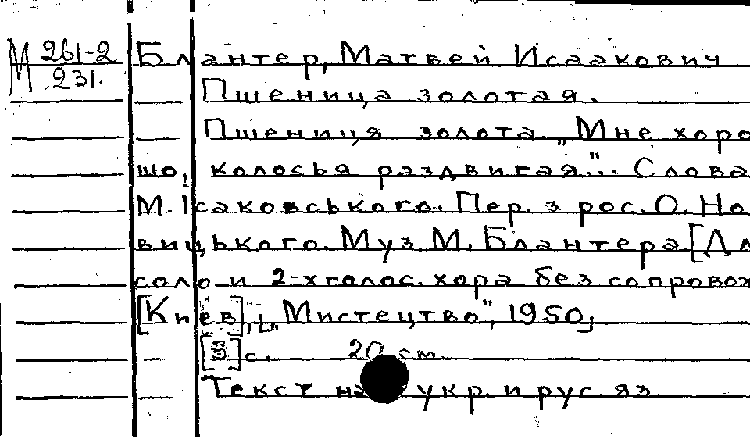 М 261-2
231.
Блантер, Матвей Исаакович
Пшеница золотая.
Пшениця золота „Мне хоро
шо, колосья раздвигая"... Слова
М. Ісаковського. Пер. з рос. О. Но
вицького. Муз. М. Блантера [Дл
соло и 2-х голос. хора без сопровож
[Киев], „Мистецтво", 1950,
[3] с. 20 см.
Текст на укр. и рус. яз